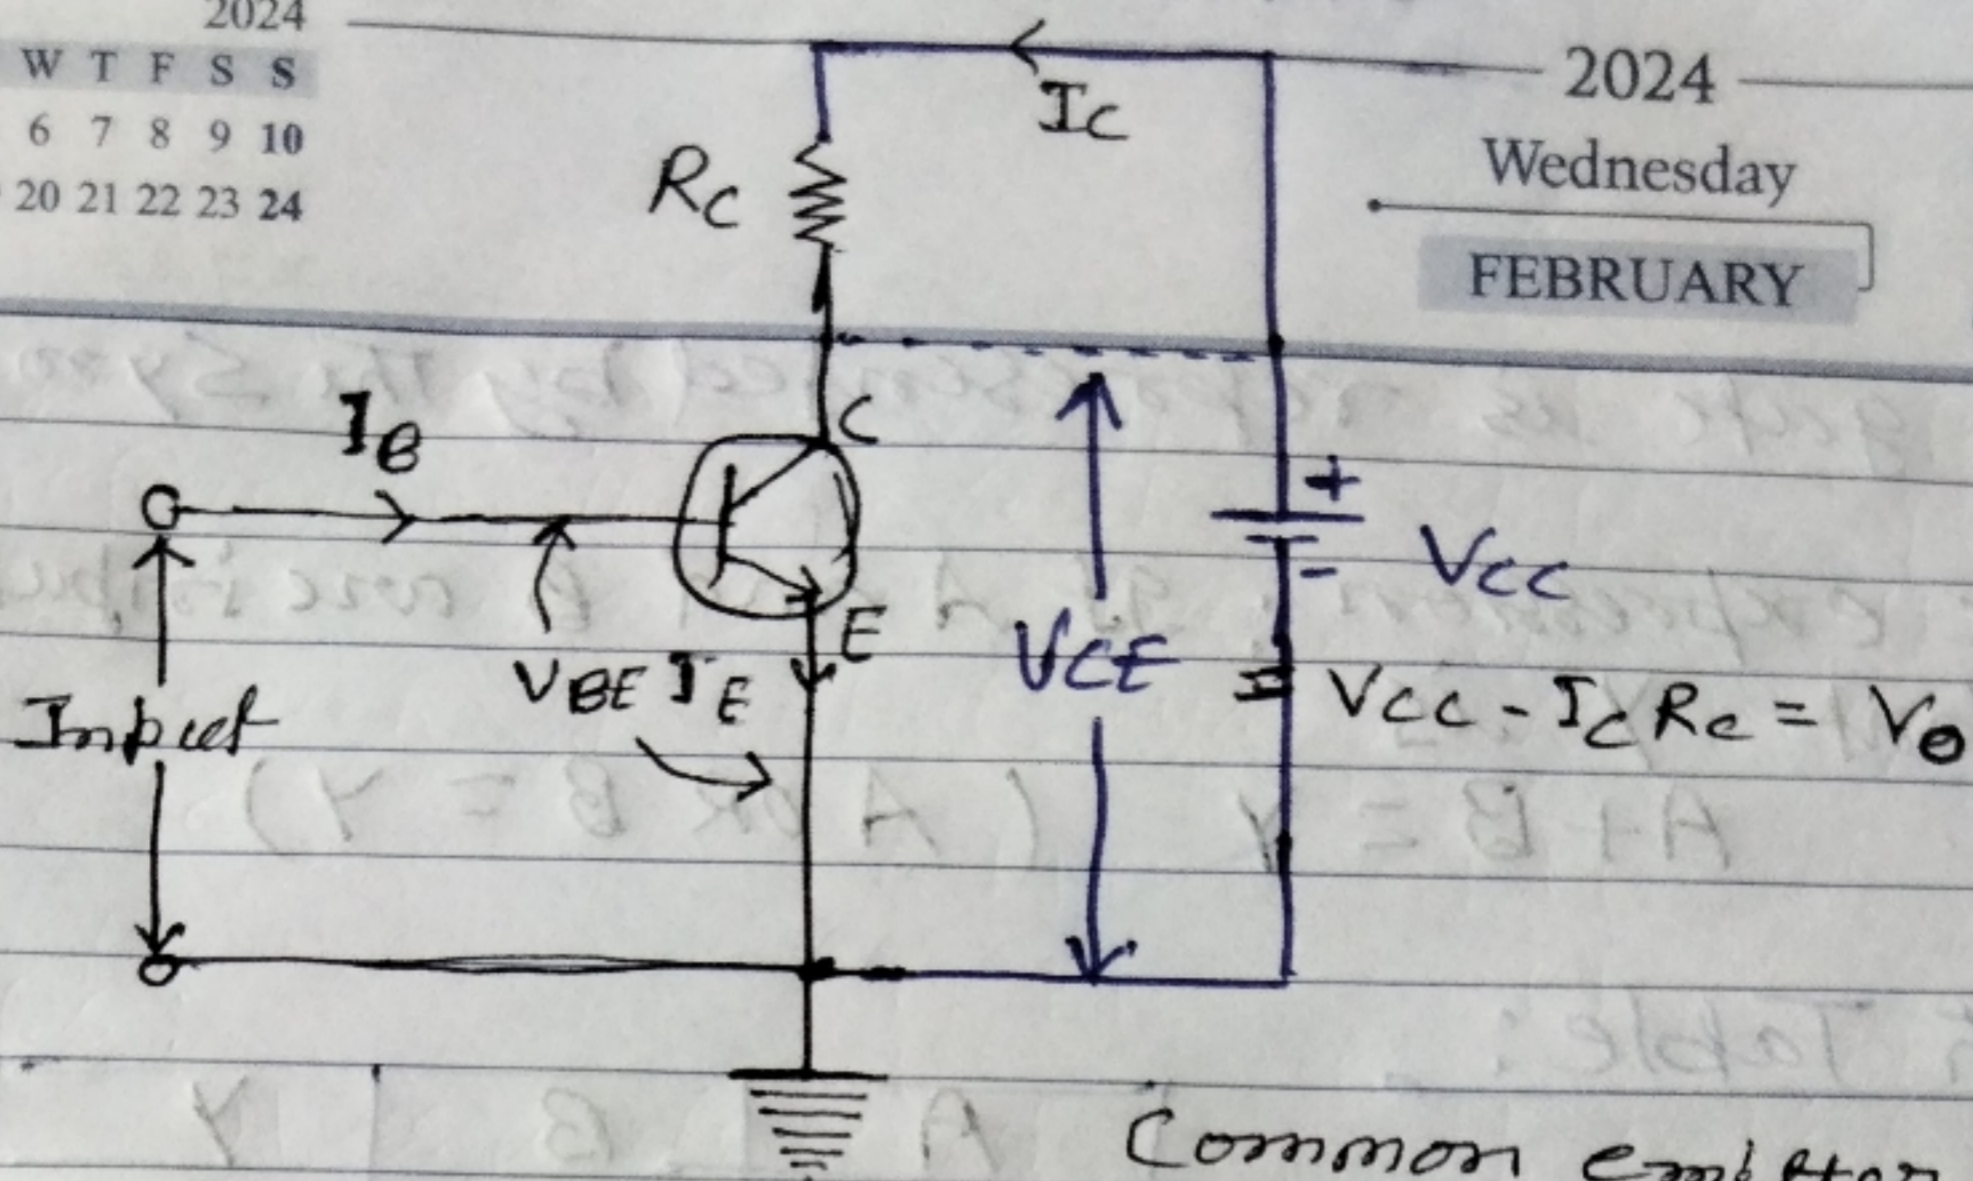 2024
W T F S S
6 7 8 9 10
20 21 22 23 24
2024
Wednesday
FEBRUARY
IC
RC
C
IB
+
VCC
-
E
VBE IE
VCE = VCC - IC RC = VO
Input
Common emitter